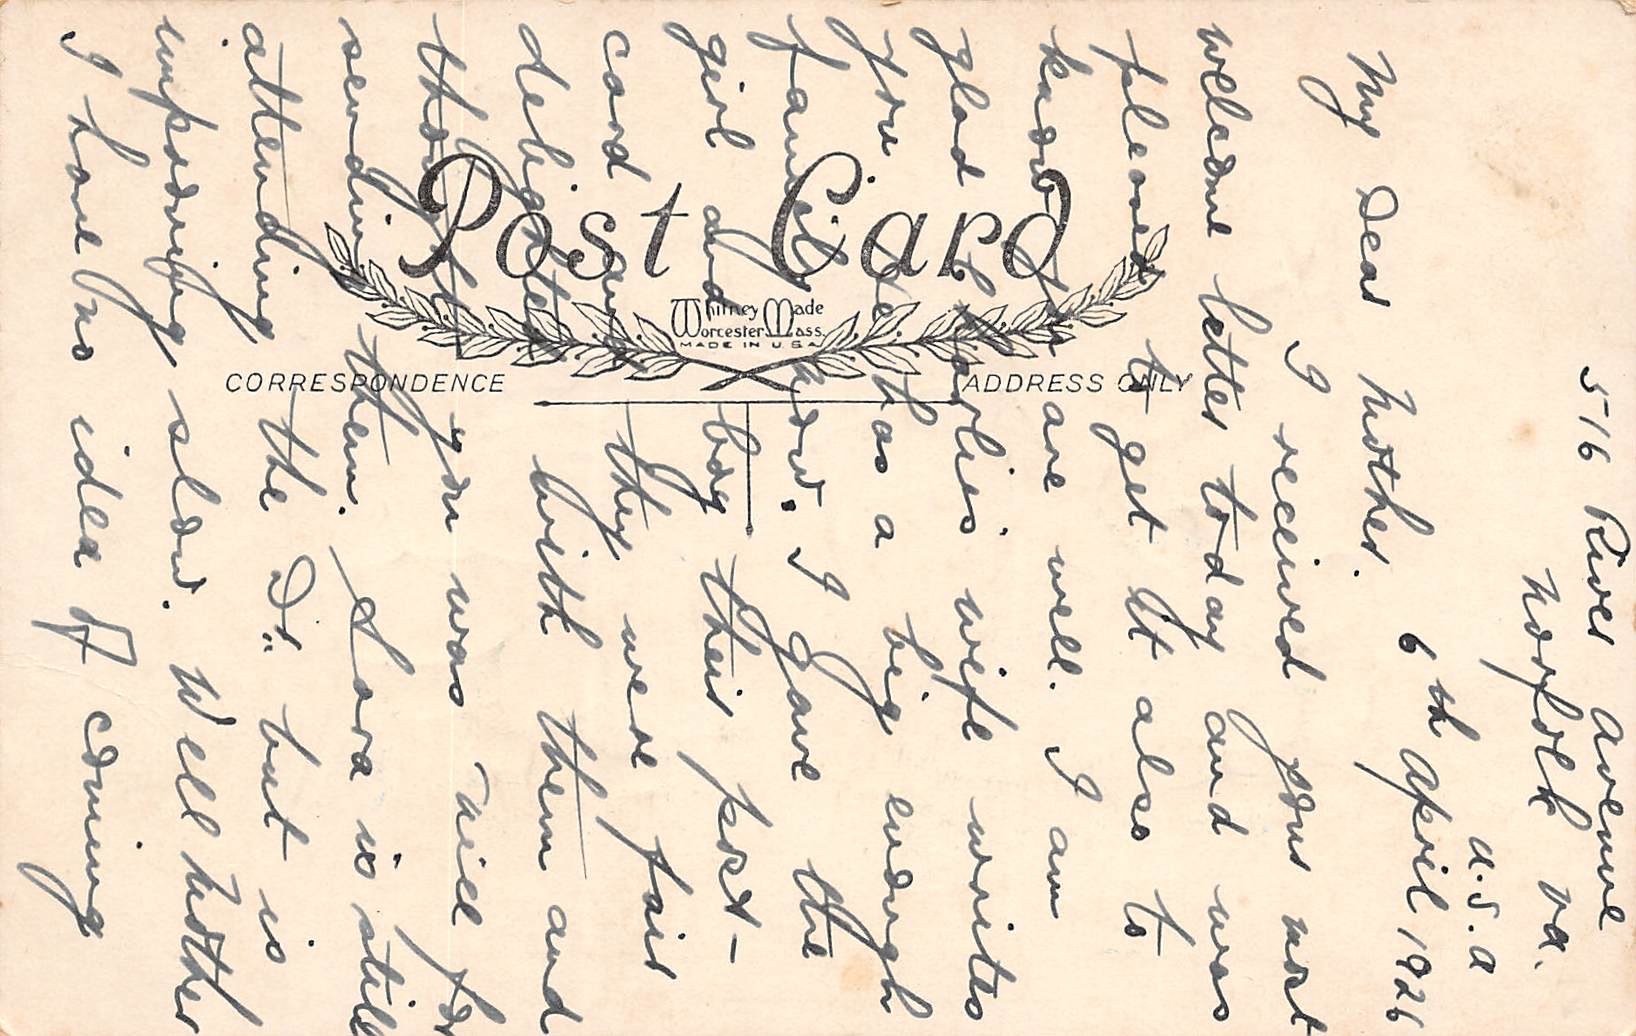 516 River Avenue
Norfolk Va.
U.S.A
6th April 1926
My Dear Mother.
I received your most
welcome letter today and was
pleased to get it also to
know you are well. I am
glad Charlies wife writes
you. He has a big enough
family now. I gave the
girl and boy their post-
card and they were fair
delighted with them and
thought you was nice for
sending them. Lora is still
attending the Dr. but is
improving slow. Well Mother
I have no idea of coming
Post Card
Whitney Made
Worcester Mass.
MADE IN U.S.A.
CORRESPONDENCE
ADDRESS ONLY